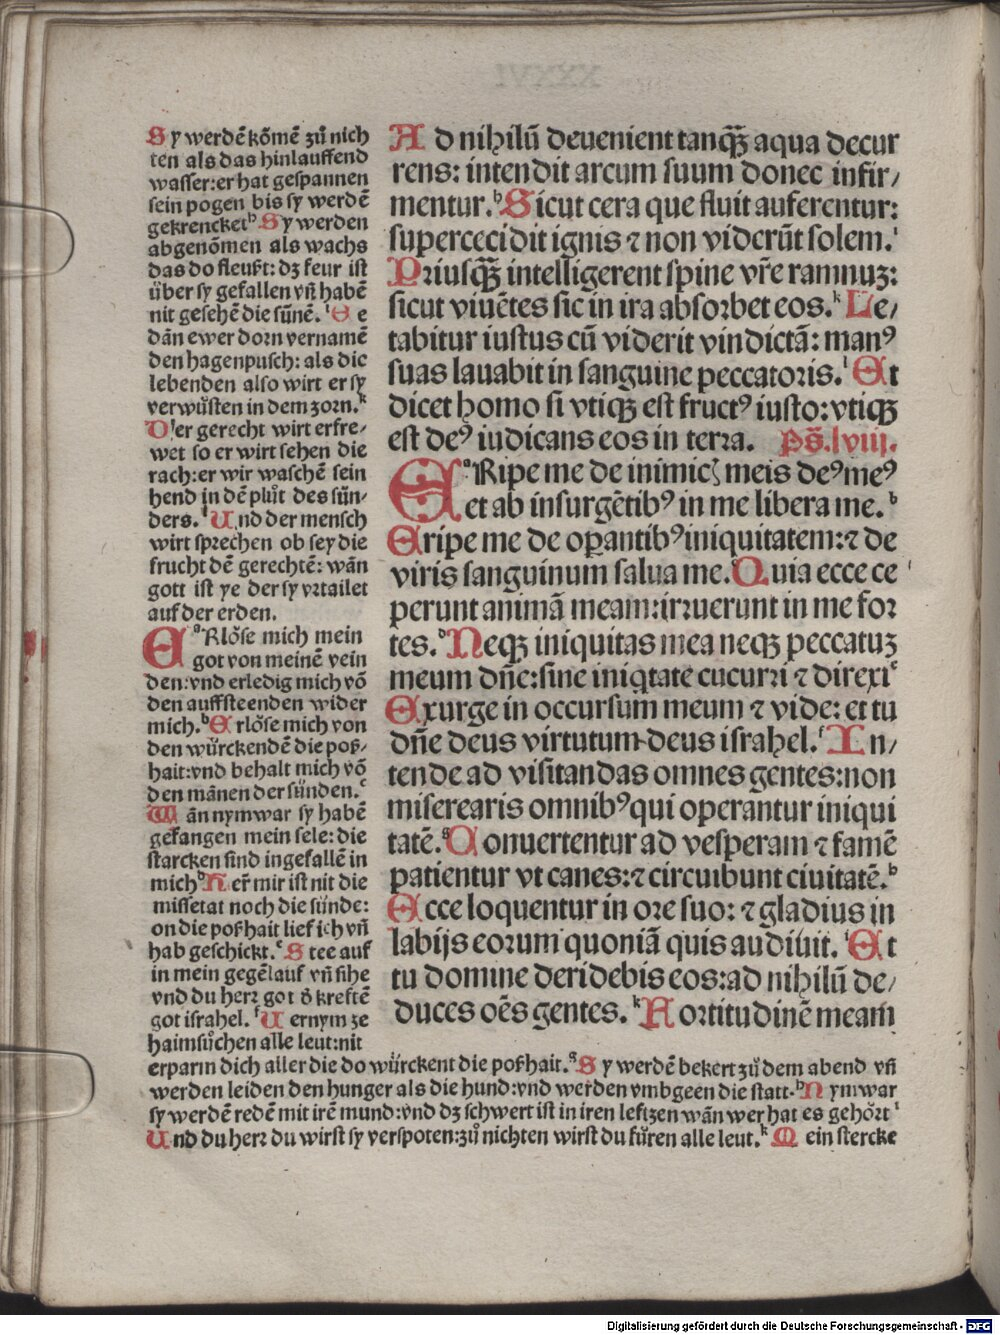 Sy werdē kōmē zů nich
ten als das hinlauffend
wasser: er hat gespannen
sein pogen bis sy werdē
gekrencket ᵇ Sy werden
abgenōmen als wachs
das do fleußt: dz feur ist
über sy gefallen vñ habē
nit gesehē die sūnē. ⁱ Ee
dān ewer dorn vernamē
den hagenpusch: als die
lebenden also wirt er sy
verwůsten in dem zorn. ᵏ
Der gerecht wirt erfre/
wet so er wirt sehen die
rach: er wir waschē sein
hend in dē plůt des sün-
ders. ˡ Und der mensch
wirt sprechen ob sey die
frucht dē gerechtē: wān
gott ist ye der sy vrtailet
auf der erden.
EᵃRlöse mich mein
got von meinē vein
den: vnd erledig mich vō
den auffsteenden wider
mich. ᵇ Erlöse mich von
den würckendē die poß/
hait: vnd behalt mich vō
den mānen der sünden. ᶜ
Wān nym war sy habē
gefangen mein sele: die
starcken sind ingefallē in
mich ᵈ Ner̄ mir ist nit die
missetat noch die sünde:
on die poßhait lief ich vñ
hab geschickt. ᵉ Stee auf
in mein gegēlauf vñ sihe
vnd du herr got ð kreftē
got israhel. ᶠ Uernym ze
haimsůchen alle leut: nit
Ad nihilū deuenient tanqꝫ aqua decur
rens: intendit arcum suum donec infir/
mentur. ᵇ Sicut cera que fluit auferentur:
supercecidit ignis ⁊ non viderūt solem. ⁱ
Priusqꝫ intelligerent spine vr̄e ramnuꝫ:
sicut viuētes sic in ira absorbet eos. ᵏ Le/
tabitur iustus cū viderit vindictā: manꝰ
suas lauabit in sanguine peccatoris. ˡ Et
dicet homo si vtiqꝫ est fructꝰ iusto: vtiqꝫ
est deꝰ iudicans eos in terra. Ps̄. lviij.
EᵃRipe me de inimicꝭ meis deꝰ meꝰ
et ab insurgētibꝰ in me libera me. ᵇ
Eripe me de oꝑantibꝰ iniquitatem: ⁊ de
viris sanguinum salua me. Quia ecce ce ᶜ
perunt animā meam: irruerunt in me for
tes. ᵈ Neqꝫ iniquitas mea neqꝫ peccatuꝫ
meum dñe: sine iniqtate cucurri ⁊ direxi ᵉ
Exurge in occursum meum ⁊ vide: et tu
dñe deus virtutum deus israhel. ᶠ In/
tende ad visitandas omnes gentes: non
miserearis omnibꝰ qui operantur iniqui
tatē. ᵍ Conuertentur ad vesperam ⁊ famē
patientur vt canes: ⁊ circuibunt ciuitatē. ʰ
Ecce loquentur in ore suo: ⁊ gladius in
labijs eorum quoniā quis audiuit. ⁱ Et
tu domine deridebis eos: ad nihilū de/
duces oēs gentes. ᵏ Fortitudinē meam
erparm dich aller die do würckent die poßhait. ᵍ Sy werdē bekert zů dem abend vñ
werden leiden den hunger als die hund: vnd werden vmbgeen die statt. ʰ Nym war
sy werdē redē mit irē mund: vnd dz schwert ist in iren lefftzen wān wer hat es gehört ⁱ
Und du herr du wirst sy verspoten: zů nichten wirst du fůren alle leut. ᵏ Mein stercke
Digitalisierung gefördert durch die Deutsche Forschungsgemeinschaft - DFG